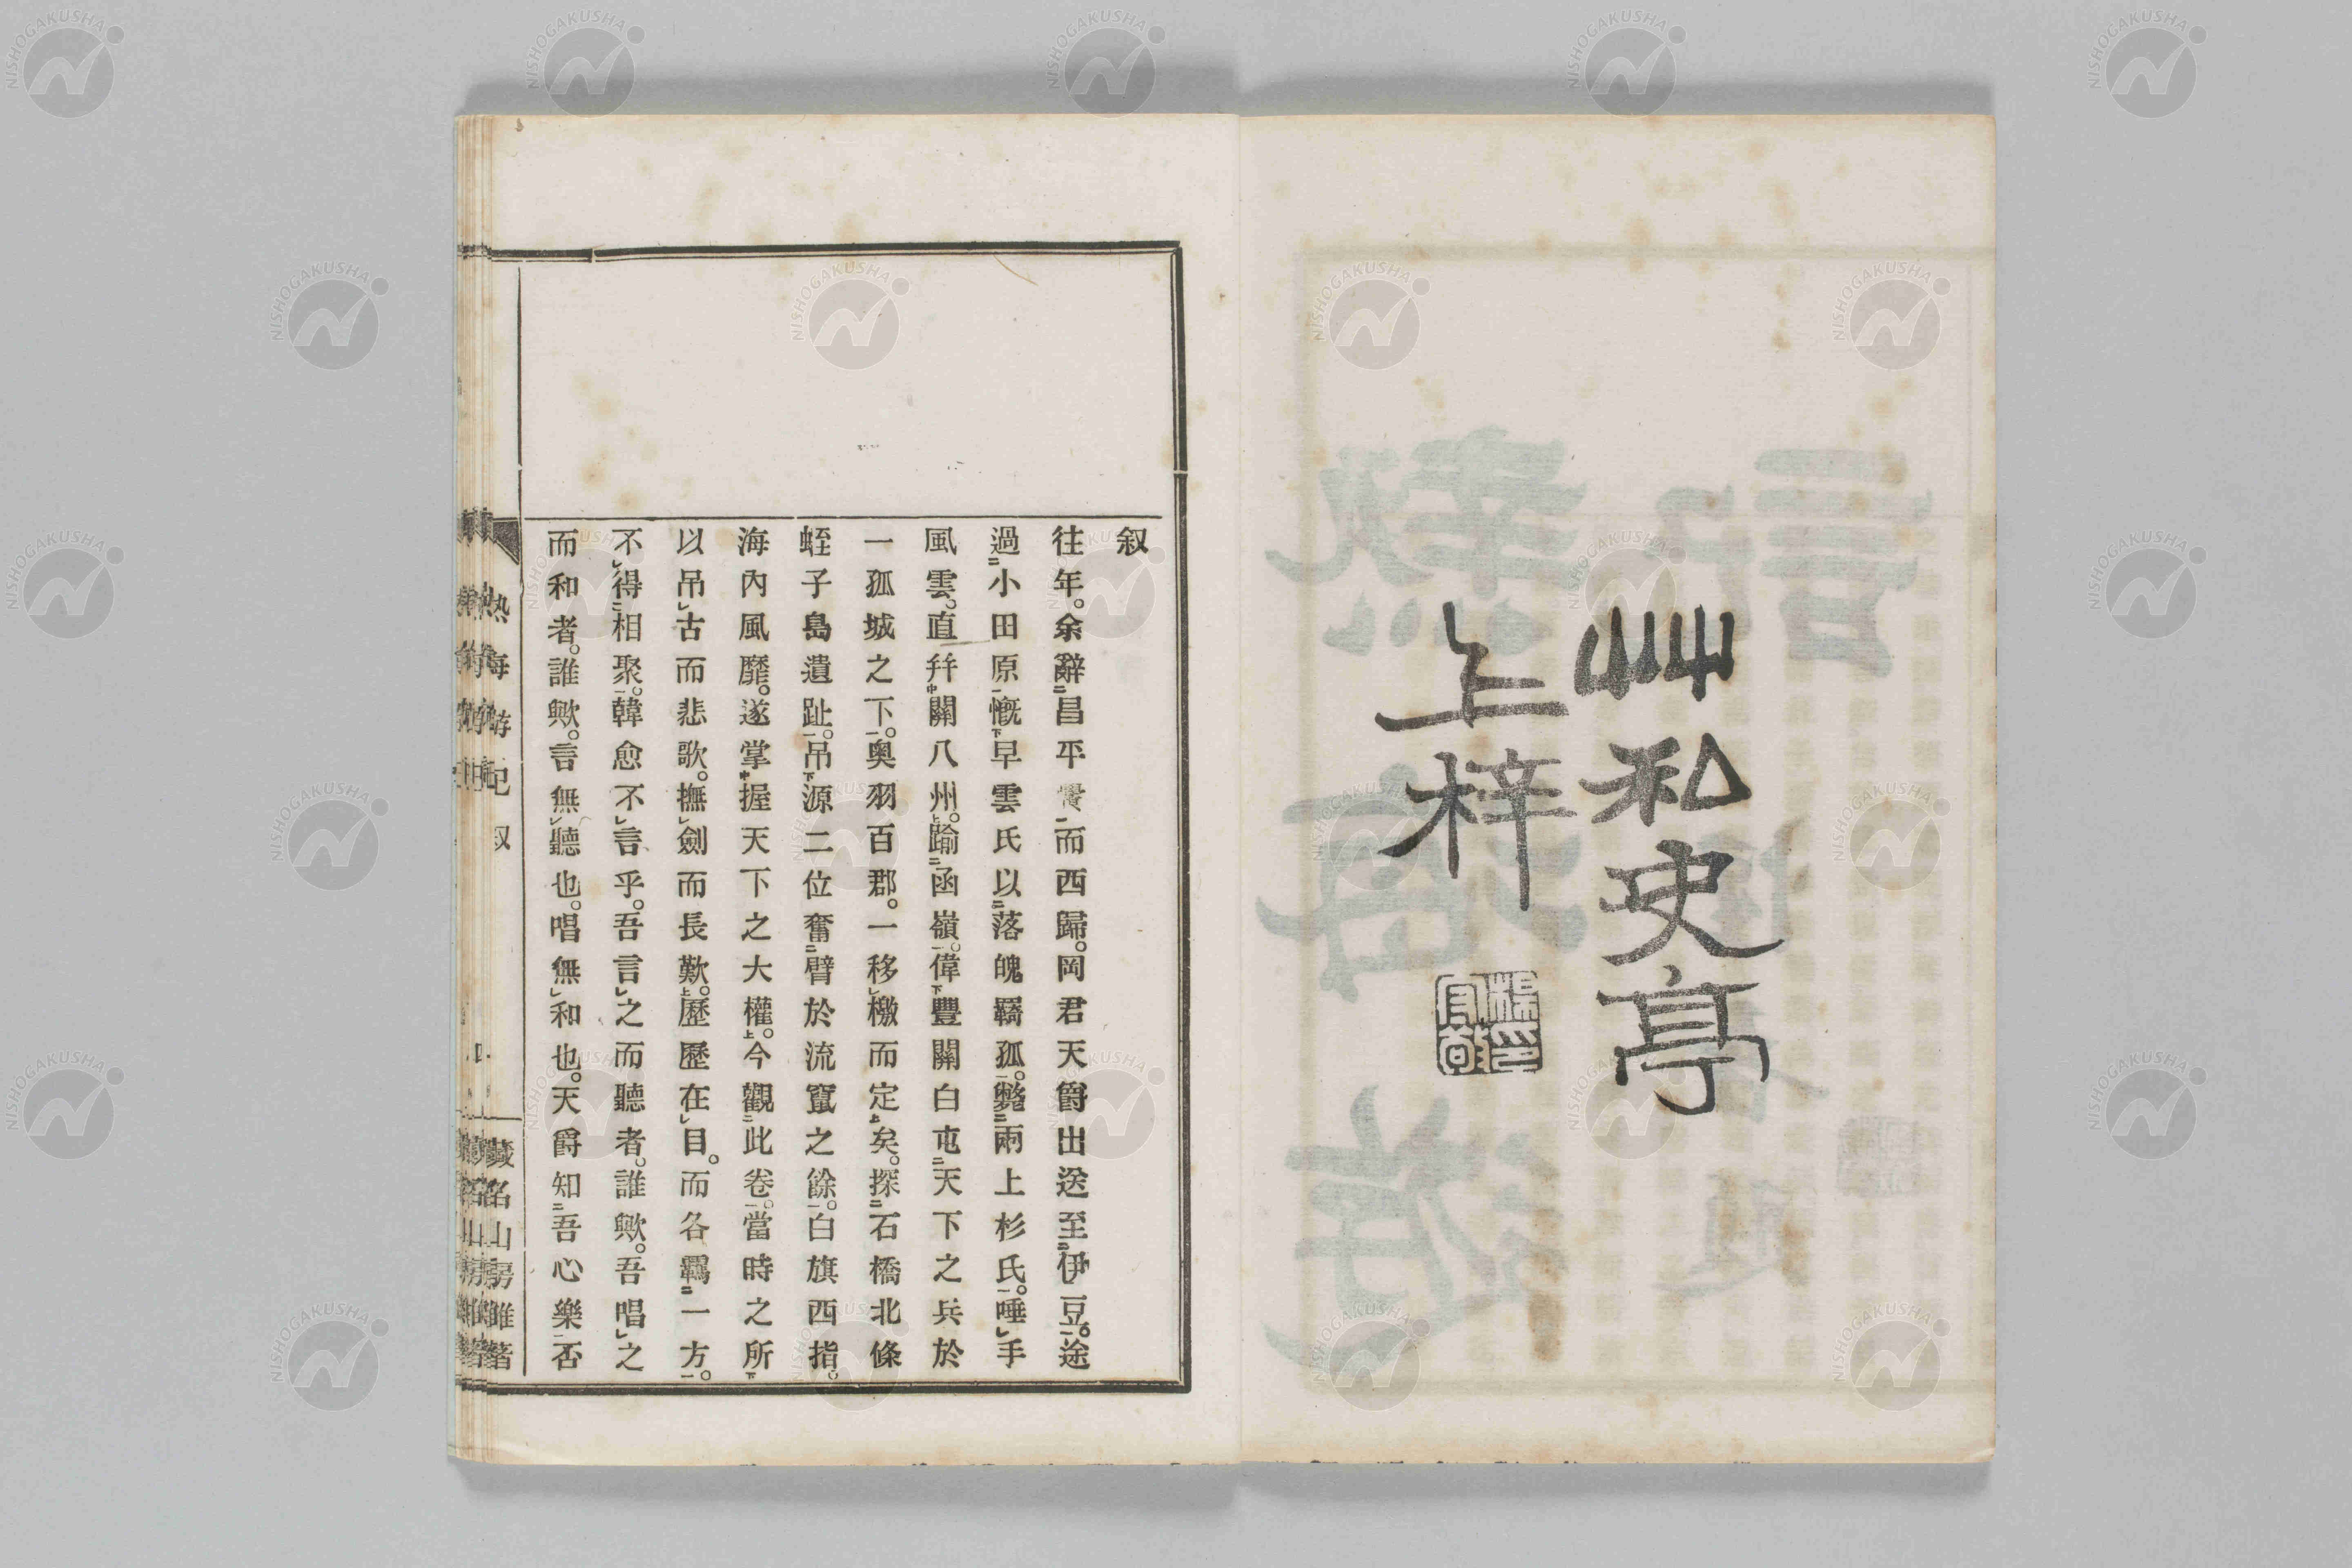 艸私史亭
上梓
叙
往年。余辭昌平黌而西歸。岡君天爵出送至伊豆。途
過小田原慨早雲氏以落魄羇孤。斃兩上杉氏。唾手
風雲。直幷關八州。踰函嶺。偉豐關白屯天下之兵於
一孤城之下。奥羽百郡。一移檄而定矣。探石橋北條
蛭子島遺趾。吊源二位奮臂於流竄之餘。白旗西指。
海內風靡。遂掌握天下之大權。今觀此卷。當時之所
以吊古而悲歌。撫劍而長歎。歷歷在目。而各羈一方。
不得相聚。韓愈不言乎。吾言之而聽者。誰歟。吾唱之
而和者。誰歟。言無聽也。唱無和也。天爵知吾心樂否
熱海游記 叙
藏名山房雜著
NISHOGAKUSHA